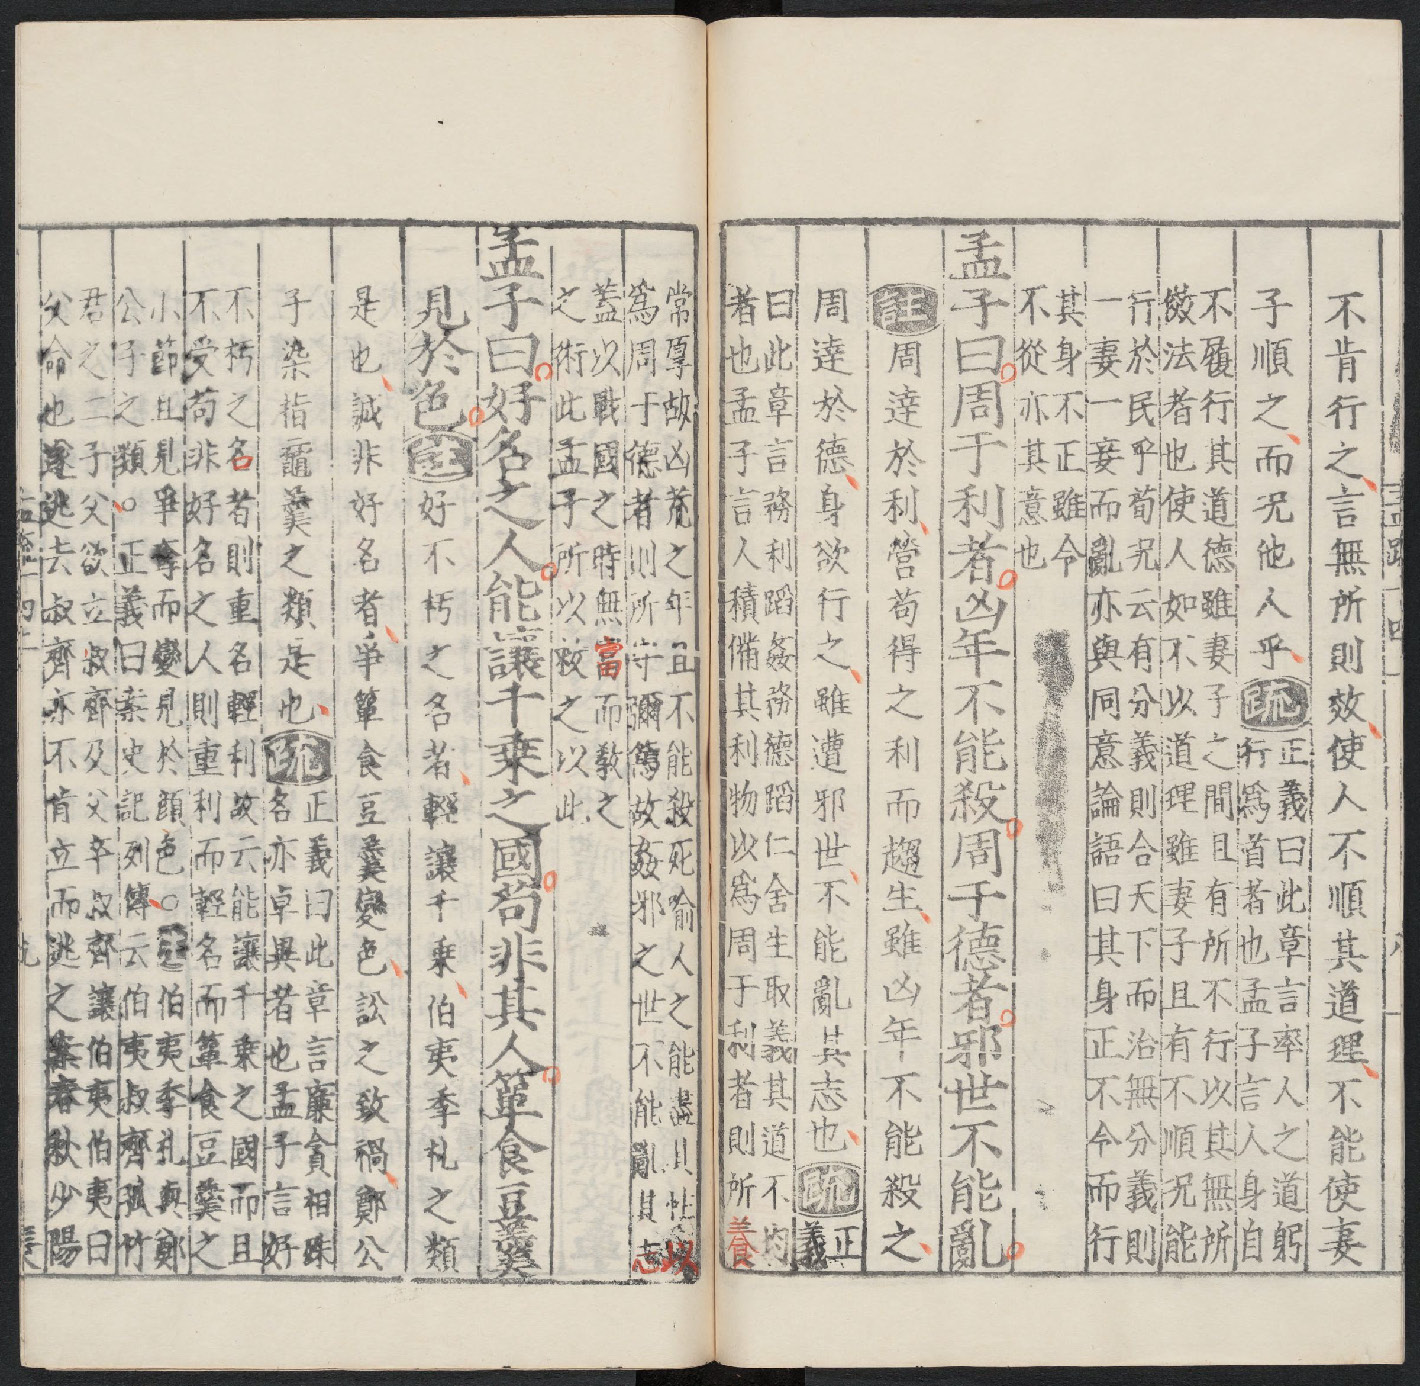 不肯行之言無所則效使人不順其道理不能使妻
子順之而況他人乎疏正義曰此章言率人之道躬
行爲首者也孟子言人身自
不履行其道德雖妻子之間且有所不行以其無所
傚法者也使人如不以道理雖妻子且有不順況能
行於民乎荀況云有分義則合天下而治無分義則
一妻一妾而亂亦與同意論語曰其身正不令而行
其身不正雖令
不從亦其意也
孟子曰周于利者凶年不能殺周于德者邪世不能亂
註周達於利營苟得之利而趨生雖凶年不能殺之
周達於德身欲行之雖遭邪世不能亂其志也疏正
義
曰此章言務利蹈姦務德蹈仁舍生取義其道不均
者也孟子言人積備其利物以爲周于利者則所養
常厚故凶荒之年且不能殺死喻人之能盡其性以
爲周于德者則所守彌篤故姦邪之世不能亂其志
蓋以戰國之時無富而教之
之術此孟子所以救之以此
孟子曰好名之人能讓千乗之國苟非其人簞食豆羹
見於色註好不朽之名者輕讓千乗伯夷季札之類
是也誠非好名者爭簞食豆羹變色訟之致禍鄭公
子染指黿羹之類是也疏正義曰此章言廉貪相殊
名亦卓異者也孟子言好
不朽之名者則重名輕利故云能讓千乗之國而且
不受苟非好名之人則重利而輕名而簞食豆羹之
小節且見爭奪而變見於顔色○註伯夷季札與鄭
公子之類○正義曰案史記列傳云伯夷叔齊孤竹
君之二子父欲立叔齊及父卒叔齊讓伯夷伯夷曰
父命也遂逃去叔齊亦不肯立而逃之案春秋少陽